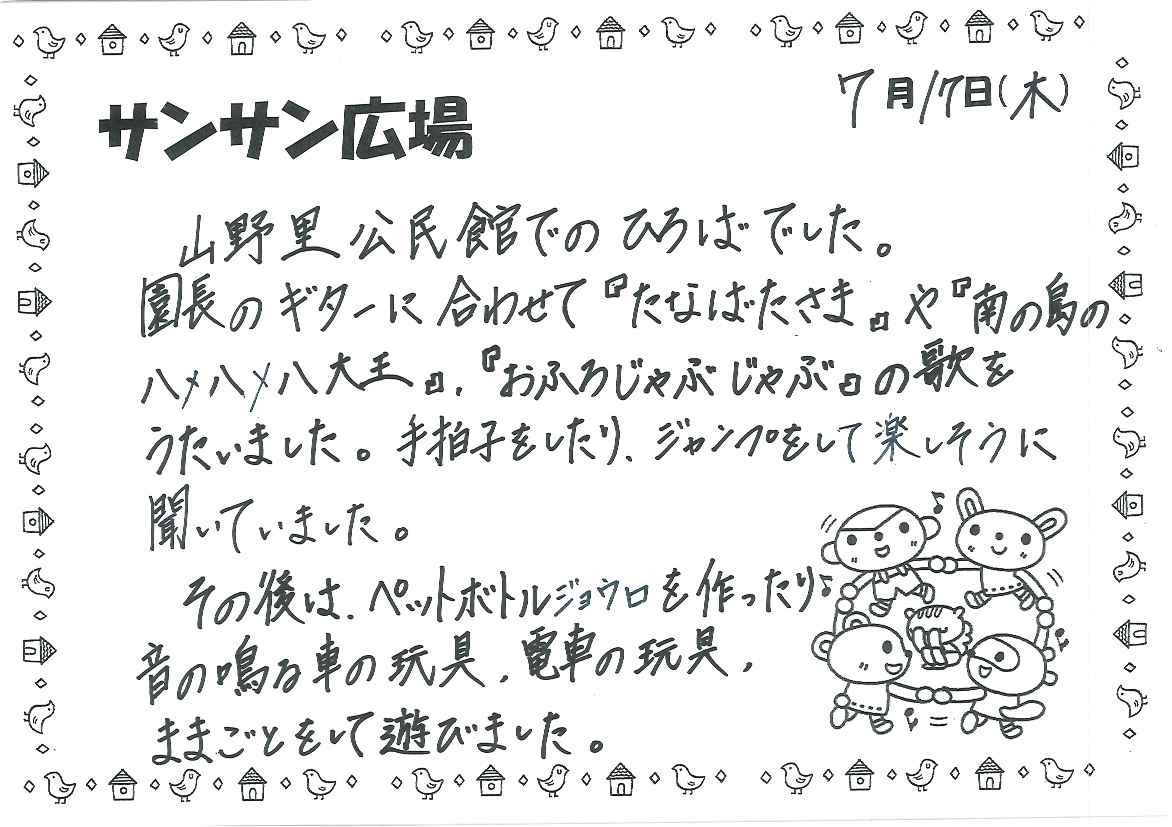 7月17日(木)
サンサン広場
山野里公民館でのひろばでした。
園長のギターに合わせて『たなばたさま』や『南の島の
ハメハメハ大王』、『おふろじゃぶじゃぶ』の歌を
うたいました。手拍子をしたり、ジャンプをして楽しそうに
聞いていました。
その後は、ペットボトルジョウロを作ったり
音の鳴る車の玩具、電車の玩具、
ままごとをして遊びました。